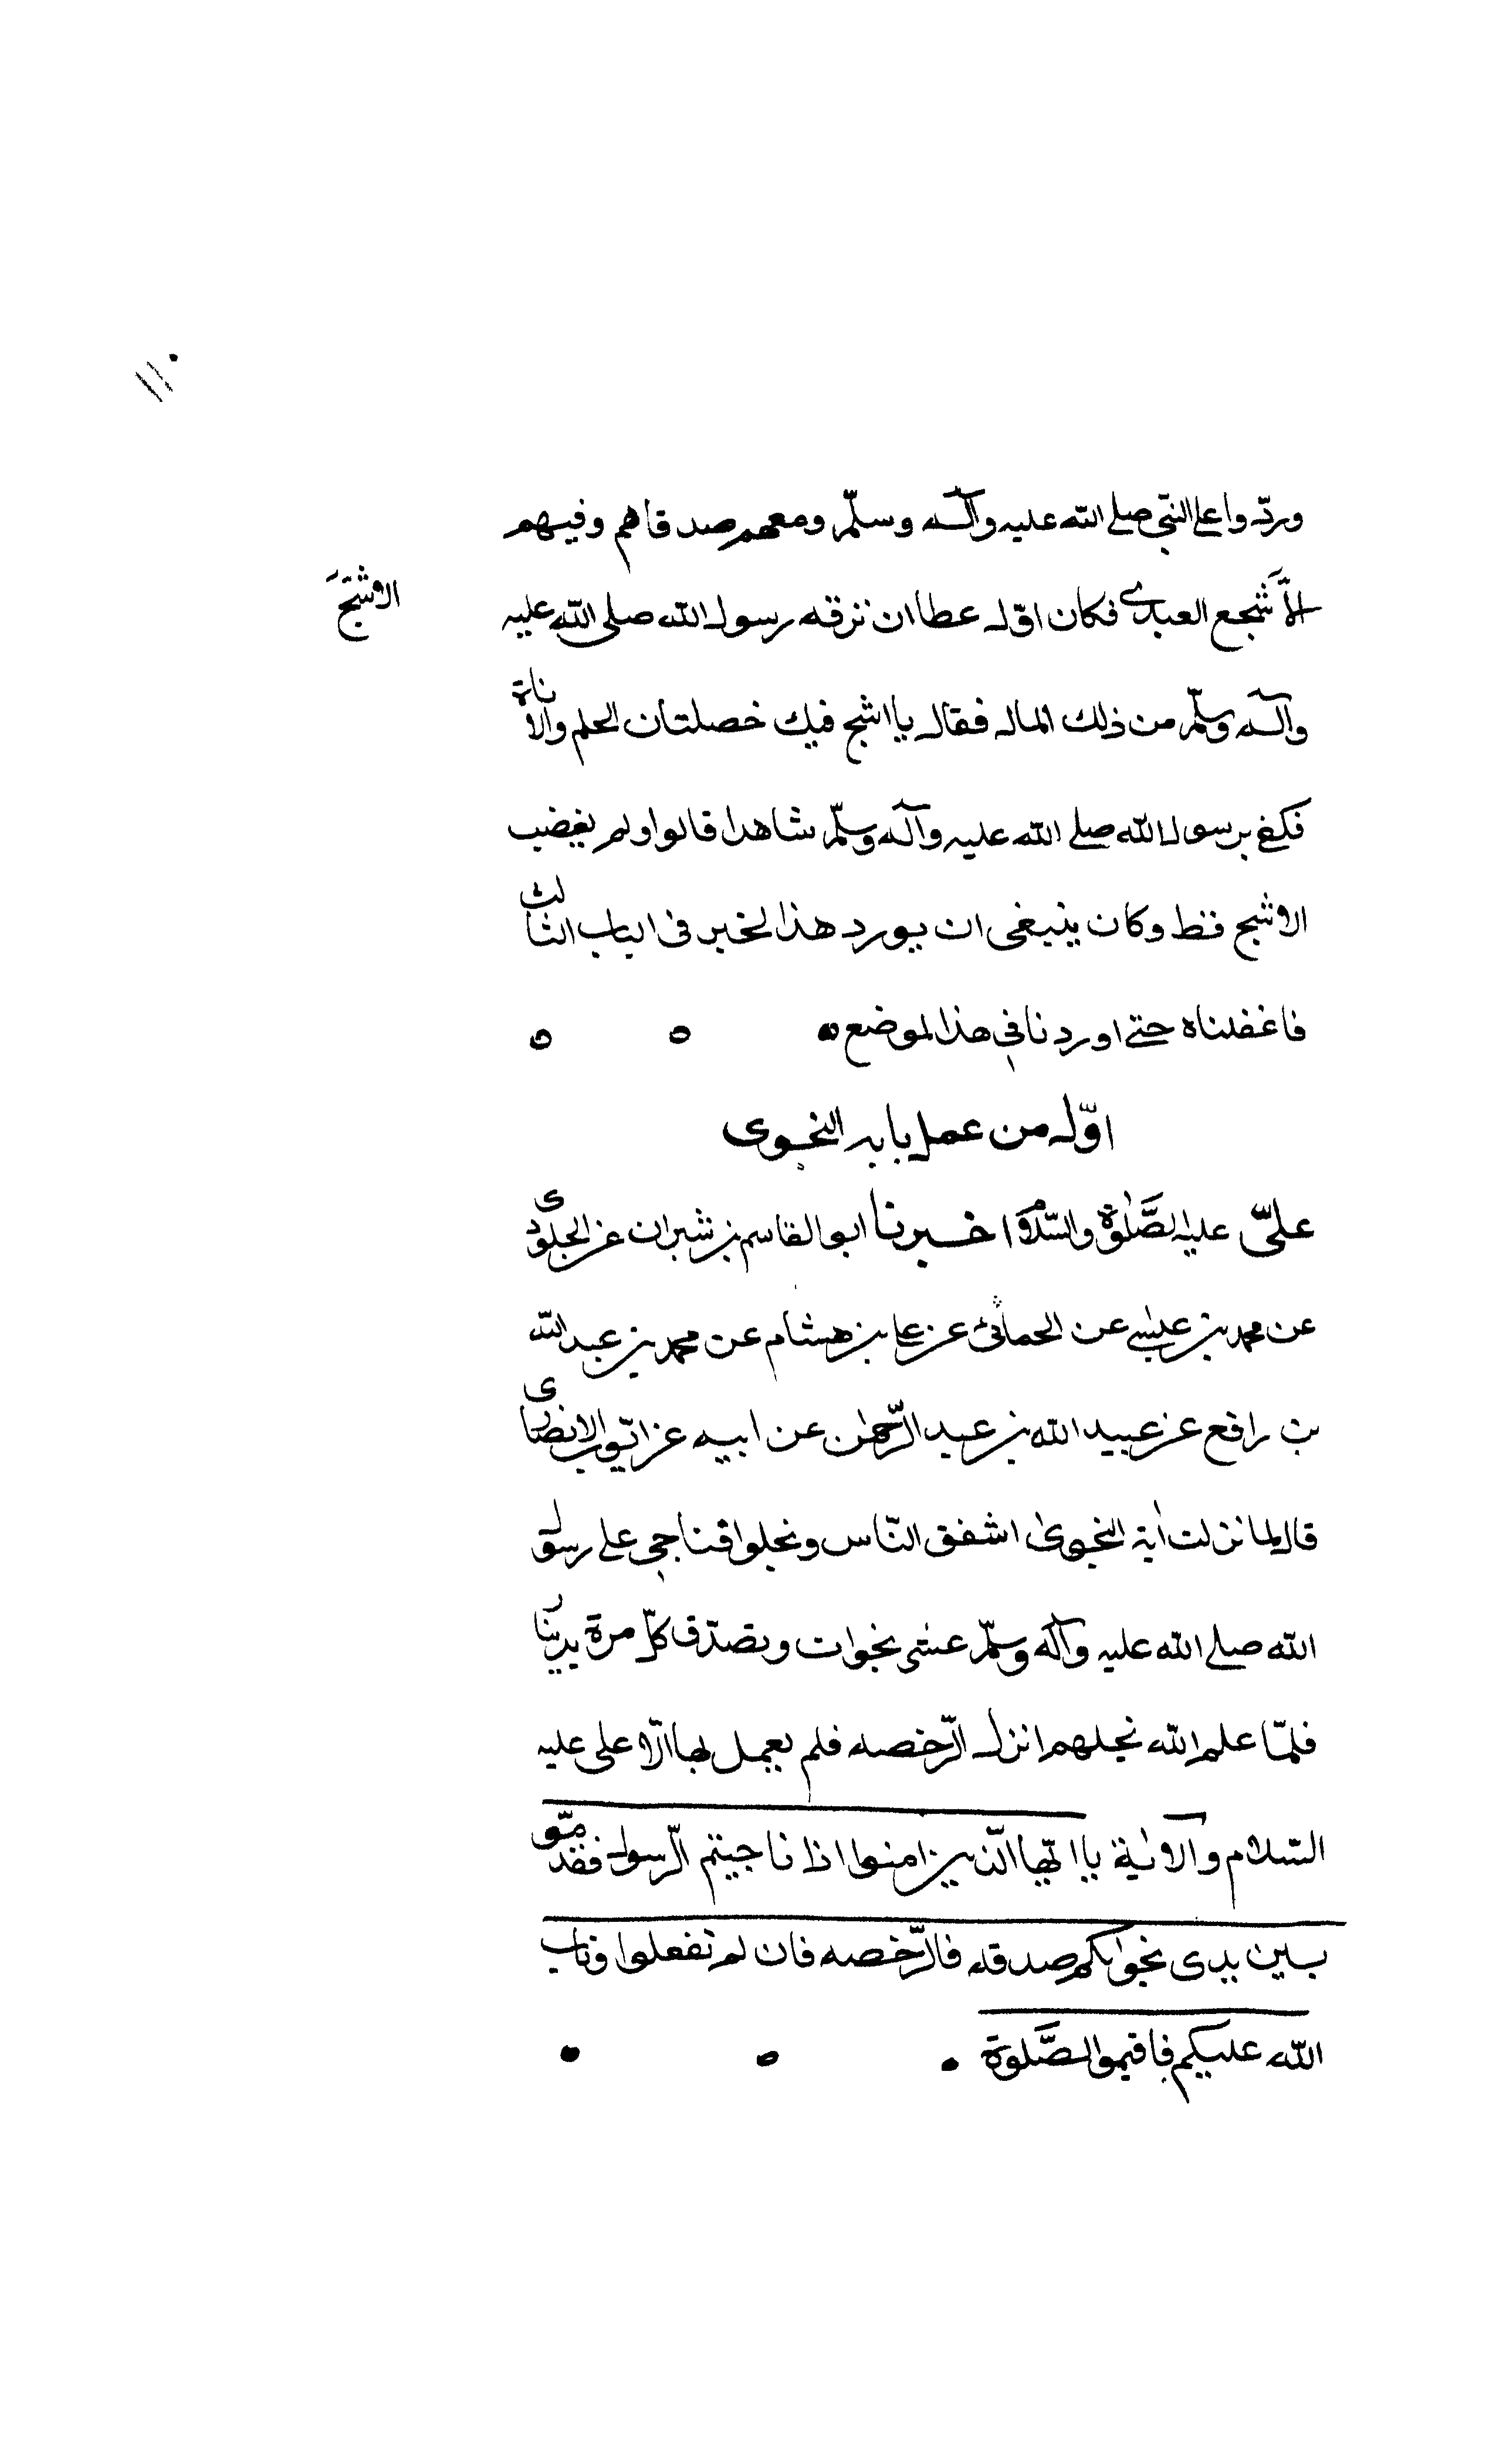 ١١٠
وردّوا على النبّي صلى الله عليه وآله وسلّم ومعهم صدقاهم وفيهم
الأشجع العبدى فكان اوّل عطا ان نزقه رسول الله صلى الله عليه
الاشجّ
وآله وسلّم من ذلك المال فقال يا اشج فيك خصلتان الحلم والاناة
فكفى برسول الله صلى الله عليه وآله وسلّم شاهدا قالوا ولم يغضب
الاشج قط وكان ينبغى ان يورد هذا الخبر فى الباب الثالث
فاغفلناه حتى اوردنا فى هذا الموضع
اوّل من عمل بايه النجوى
علىّ عليه الصَّلوة والسّلام اخبرنا ابو القاسم بن شبران عن الجلودى
عن محمد بن عيسى عن الحمانى عن على بن هشام عن محمد بن عبد الله
بن رافع عن عبيد الله بن عبد الرّحمن عن ابيه عن ايّوب الانصارى
قال لما نزلت اية النجوى اشفق النّاس ونجلوا فناجى على رسول
الله صلى الله عليه وآله وسلّم عشى نجوات وتصدّق كلّ مرة بدينار
فلمّا علم الله نجلهم انزل الرّخصه فلم يعمل بها الّا على عليه
السّلام والآية يا ايّها الّذين امنوا اذا ناجيتم الرّسول فقدمّوا
بين يدى نجويكم صدقه فالرّخصه فان لم تفعلوا وتاب
الله عليكم فاقيموا الصَّلوة